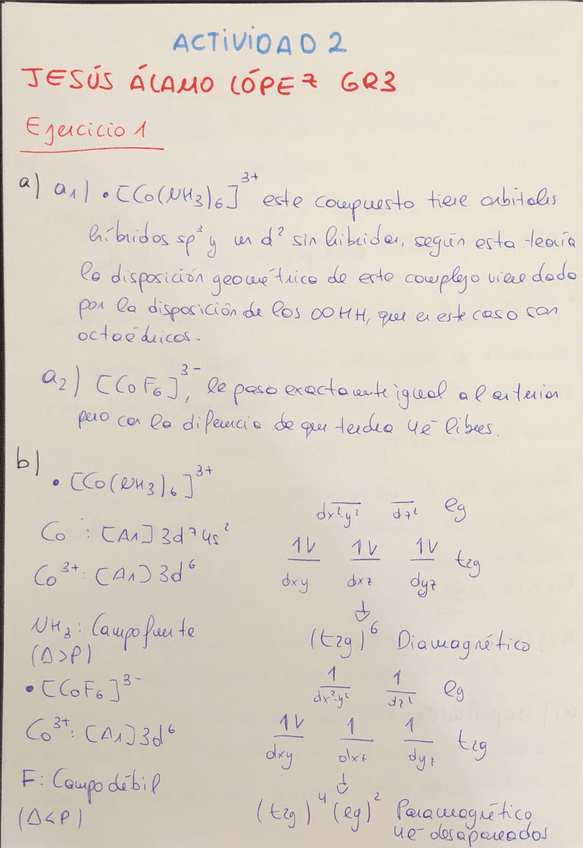 ACTIVIDAD 2
JESÚS ÁLAMO LÓPEZ GR3
Ejercicio 1
a) a1) • [Co(NH3)6]3+ este compuesto tiene orbitales
híbridos sp3 y un d2 sin hibridar, según esta teoría
la disposición geométrica de este complejo viene dada
por la disposición de los OOHH, que en este caso son
octoédricos.
a2) [CoF6]3-, le pasa exactamente igual al anterior
pero con la diferencia de que tendra 4e- libres.
b)
• [Co(NH3)6]3+
dx2-y2 dz2 eg
Co : [Ar] 3d7 4s2
1V 1V 1V t2g
Co3+ : [Ar] 3d6
dxy dxz dyz
NH3 : Campo fuerte
(t2g)6 Diamagnético
(Δ>P)
1 1 eg
• [CoF6]3-
dx2-y2 dz2
Co3+ : [Ar] 3d6
1V 1 1 t2g
dxy dxz dyz
F : Campo débil
(t2g)4 (eg)2 Paramagnético
(Δ<P)
4e- desapareados